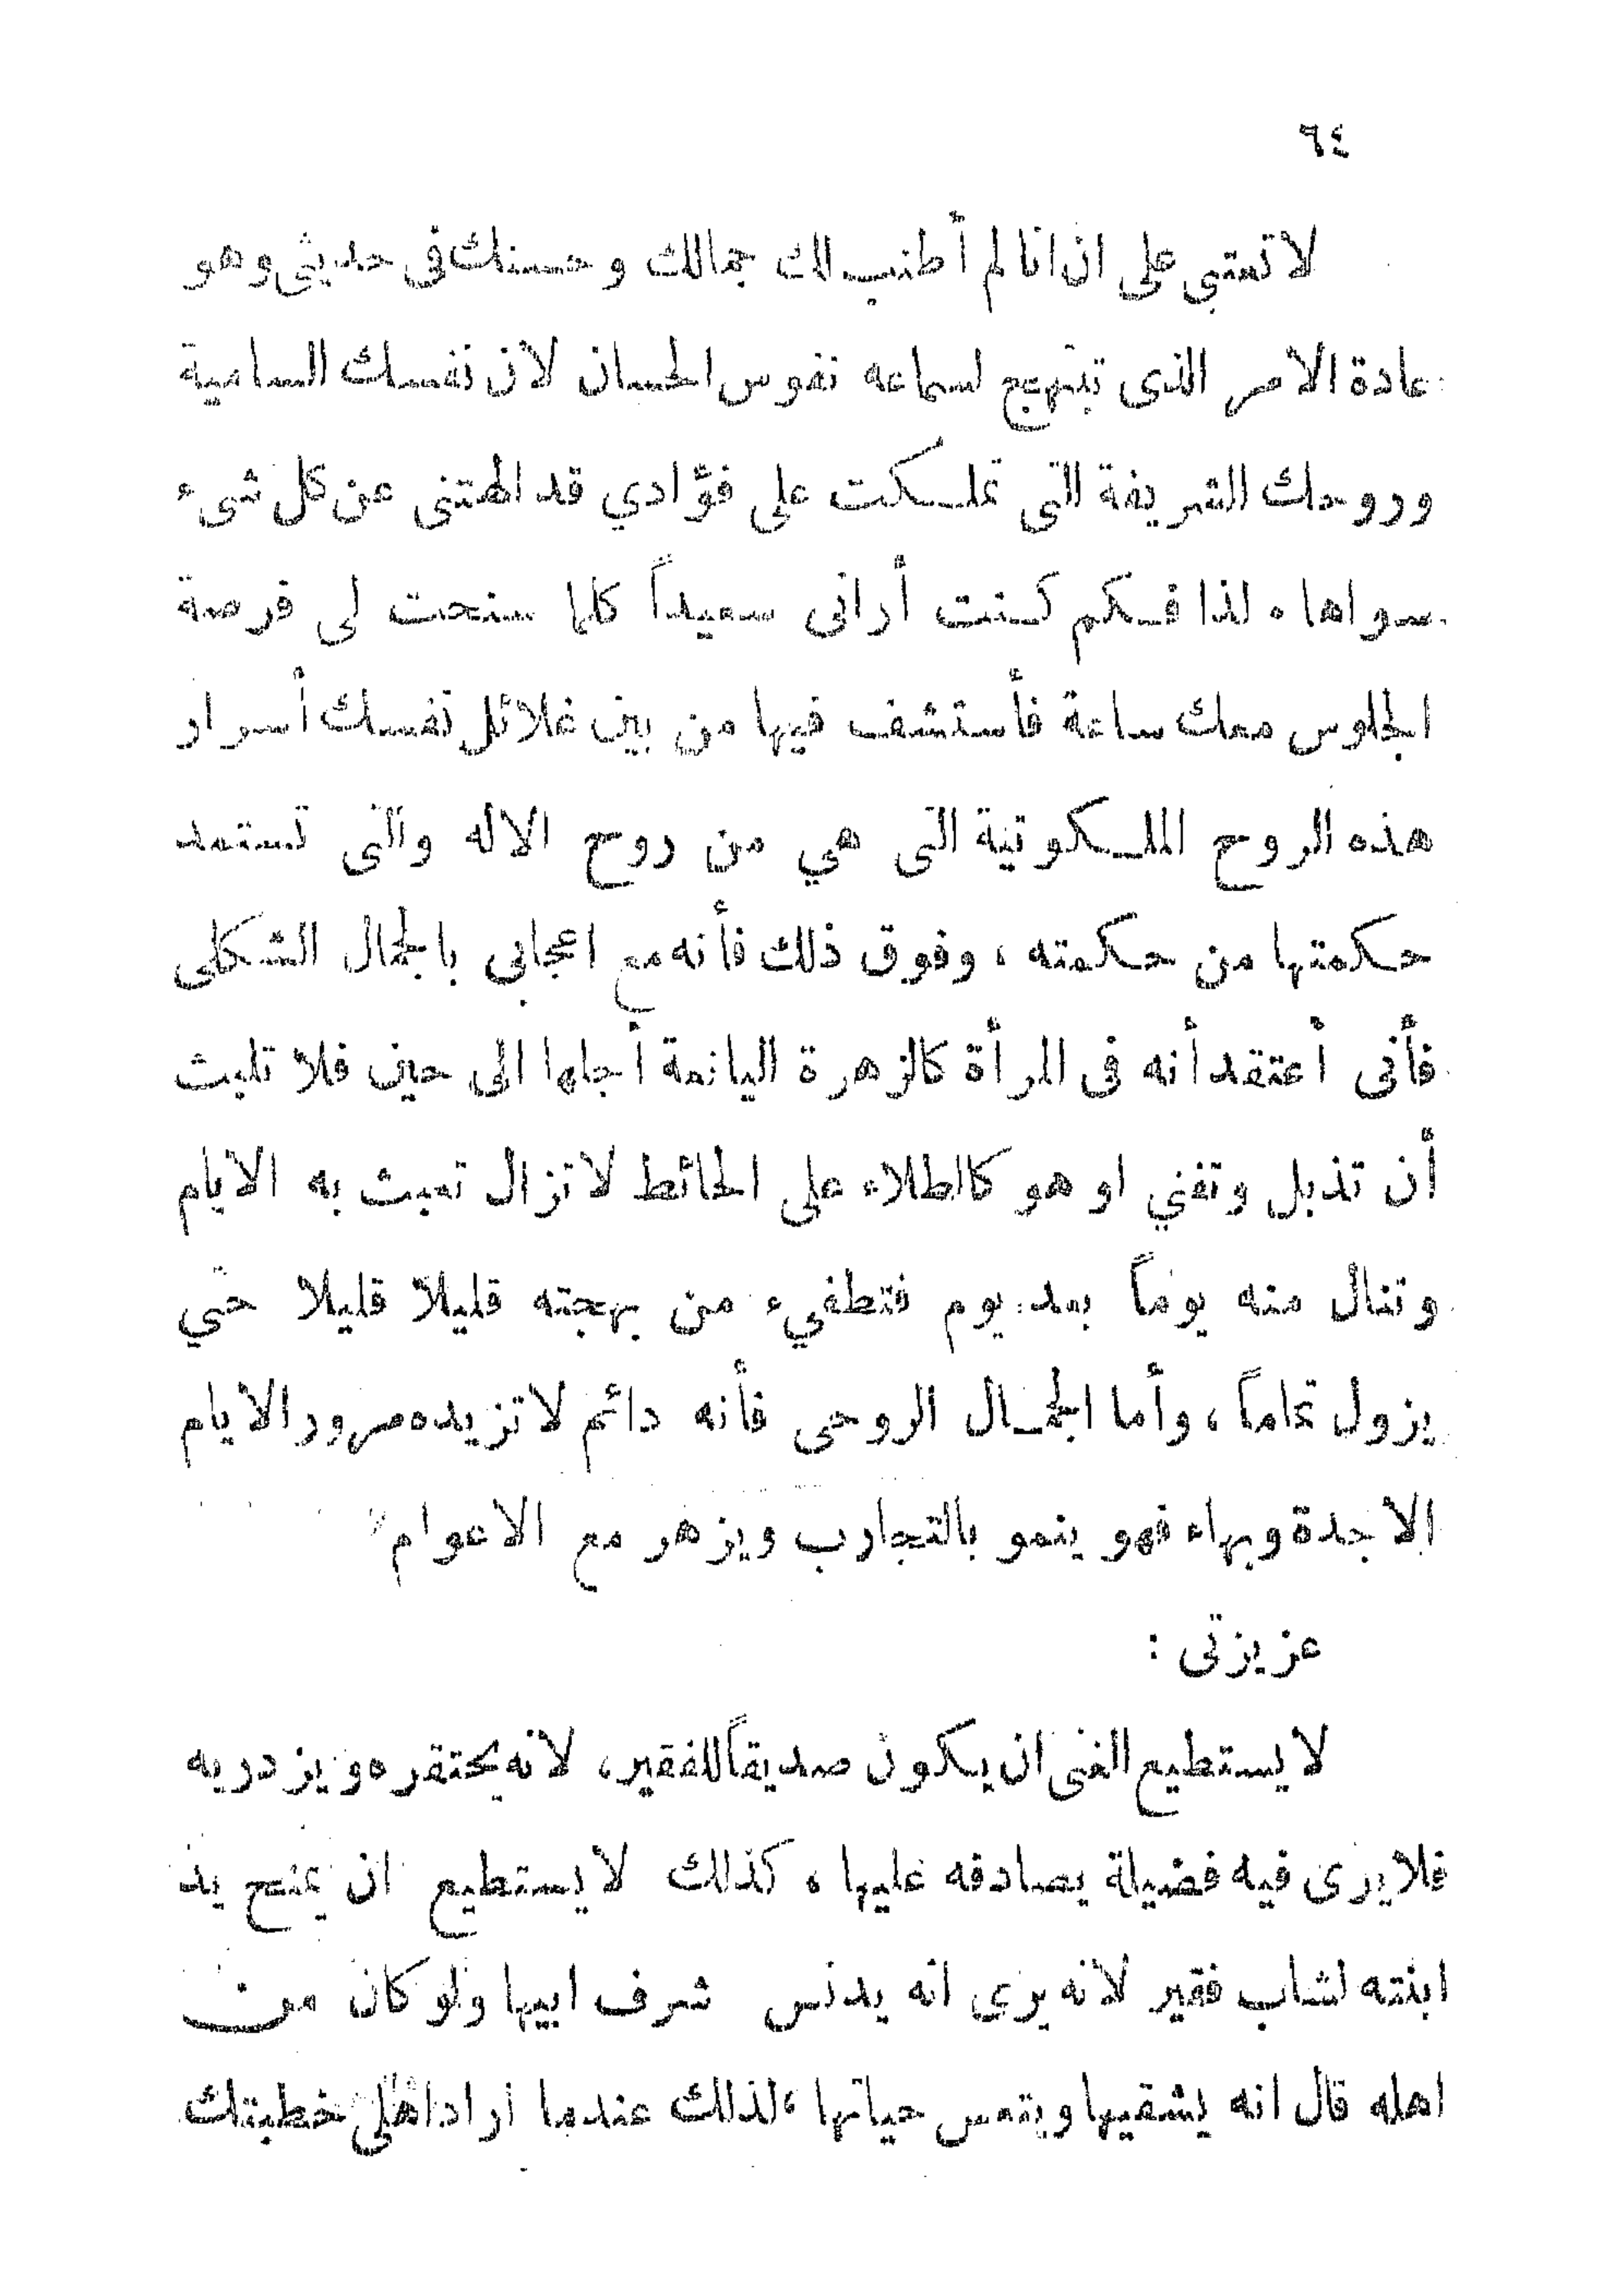 ٦٤
لا تعتبي على ان انا لم أطنب لك جمالك وحسنك فى حديثى وهو
عادة الامر الذى تبتهج لسماعه نفوس الحسان لان نفسك السامية
وروحك الشريفة التى تملكت على فؤادي قد الهتنى عن كل شىء
سواها ، لذا فكم كنت أرانى سعيداً كلما سنحت لى فرصة
الجلوس معك ساعة فأستشف فيها من بين غلائل نفسك أسرار
هذه الروح الملكوتية التى هي من روح الاله والتى تستمد
حكمتها من حكمته ، وفوق ذلك فأنه مع اعجابى بالجمال الشكلى
فأنى أعتقد أنه فى المرأة كالزهرة اليانعة أجلها الى حين فلا تلبث
أن تذبل وتفني او هو كالطلاء على الحائط لا تزال تعبث به الايام
وتنال منه يوماً بعد يوم فتطفيء من بهجته قليلا قليلا حتي
يزول تماماً ، وأما الجمال الروحى فأنه دائم لا تزيده مرور الايام
الا جدة وبهاء فهو ينمو بالتجارب ويزهر مع الاعوام
عزيزتى :
لا يستطيع الغنى ان يكون صديقاً للفقير، لانه يحتقره ويزدريه
فلا يرى فيه فضيلة يصادقه عليها ، كذلك لا يستطيع ان يمنح يد
ابنته لشاب فقير لانه يرى انه يدنس شرف ابيها ولو كان من
اهله قال انه يشقيها ويتعس حياتها ، لذلك عندما اراد اهلى خطبتك